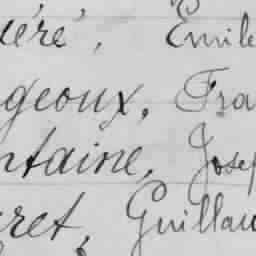 iéré, Emile
geoux, Fra
ntaine, Josep
ret, Guillau